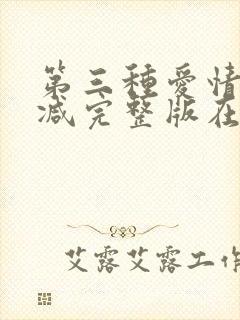 第三種愛情
減完整版在
艾露艾露工作